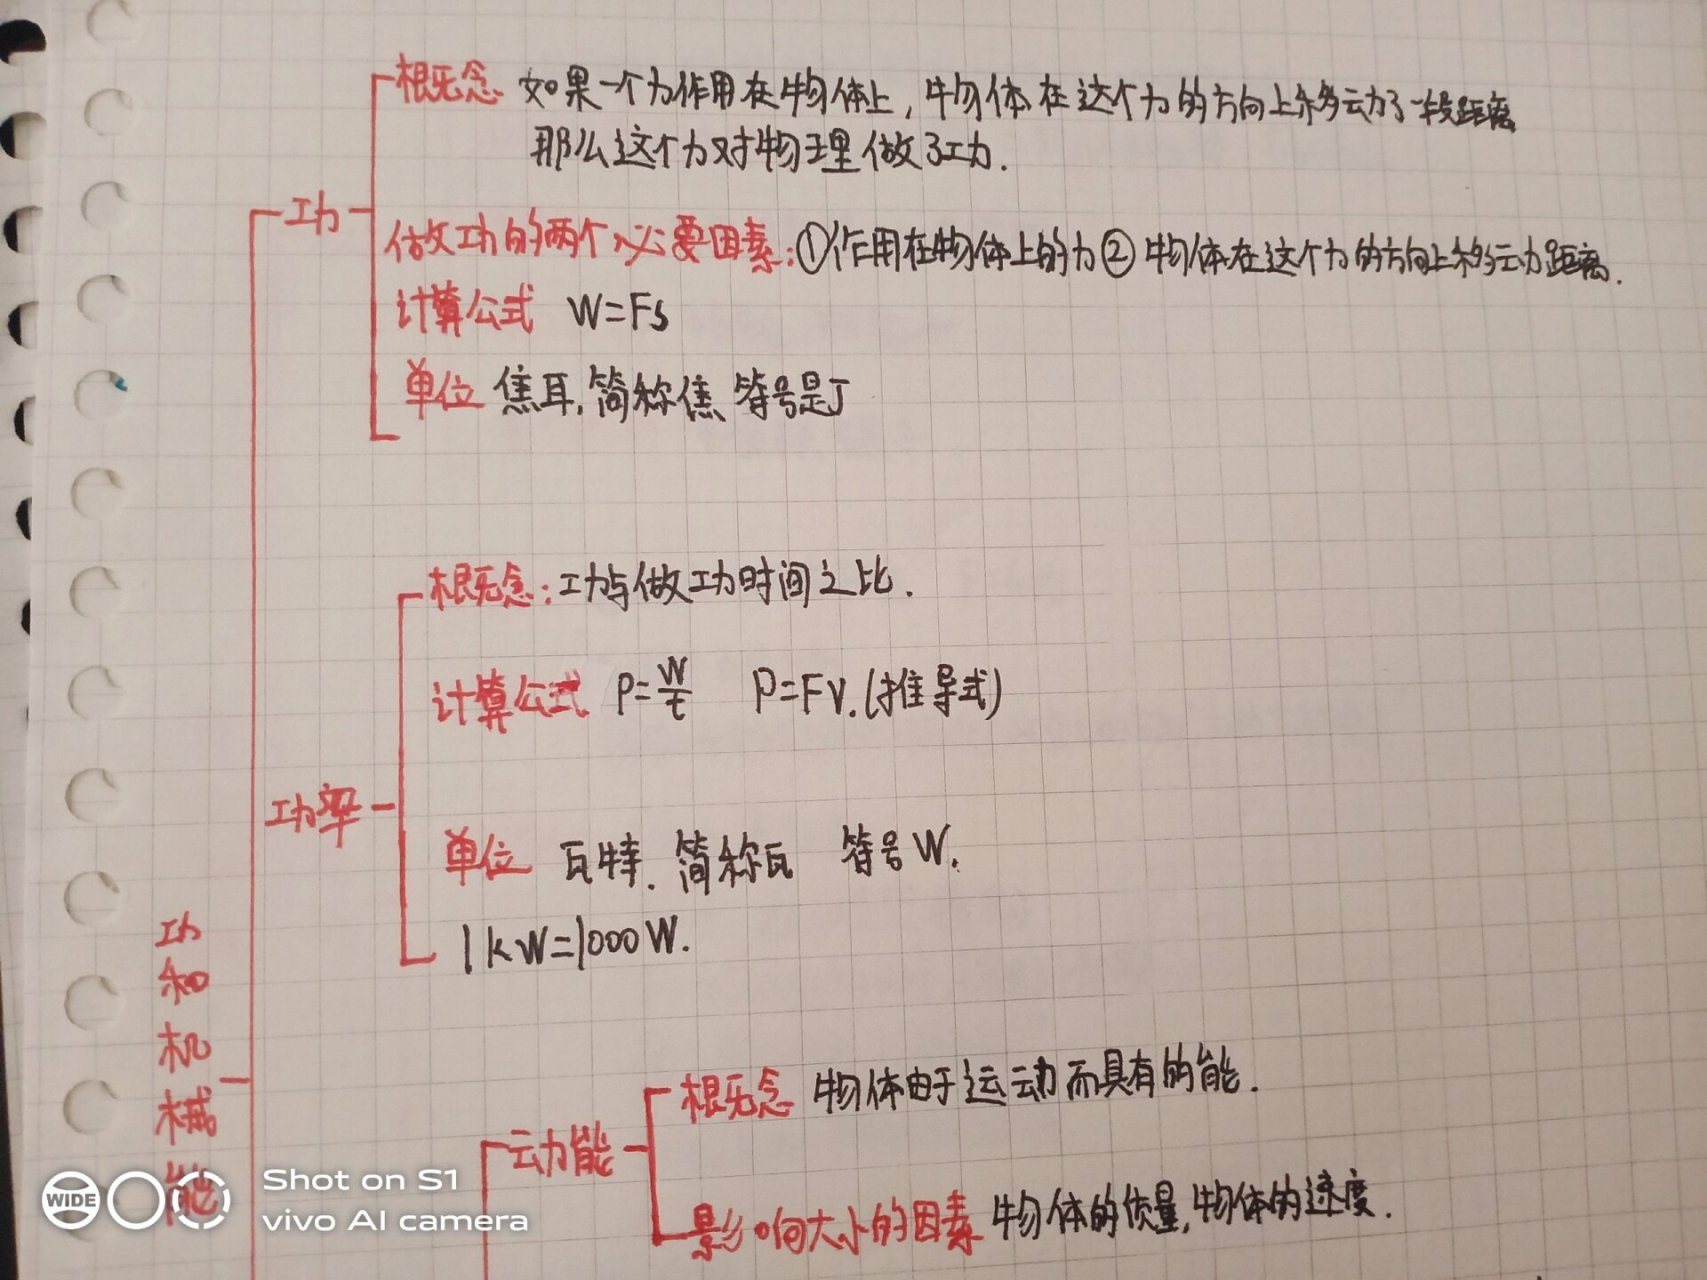 概念 如果一个力作用在物体上,物体在这个力的方向上移动了一段距离
那么这个力对物理做了功.
功
做功的两个必要因素:①作用在物体上的力②物体在这个力的方向上移动距离.
计算公式 W=Fs
单位 焦耳,简称焦 符号是J
概念:功与做功时间之比.
计算公式 P=W/t P=Fv.(推导式)
功率
单位 瓦特.简称瓦 符号W.
1kW=1000W.
功和机械能
概念 物体由于运动而具有的能.
动能
影响大小的因素 物体的质量,物体的速度.
WIDE
Shot on S1
vivo AI camera